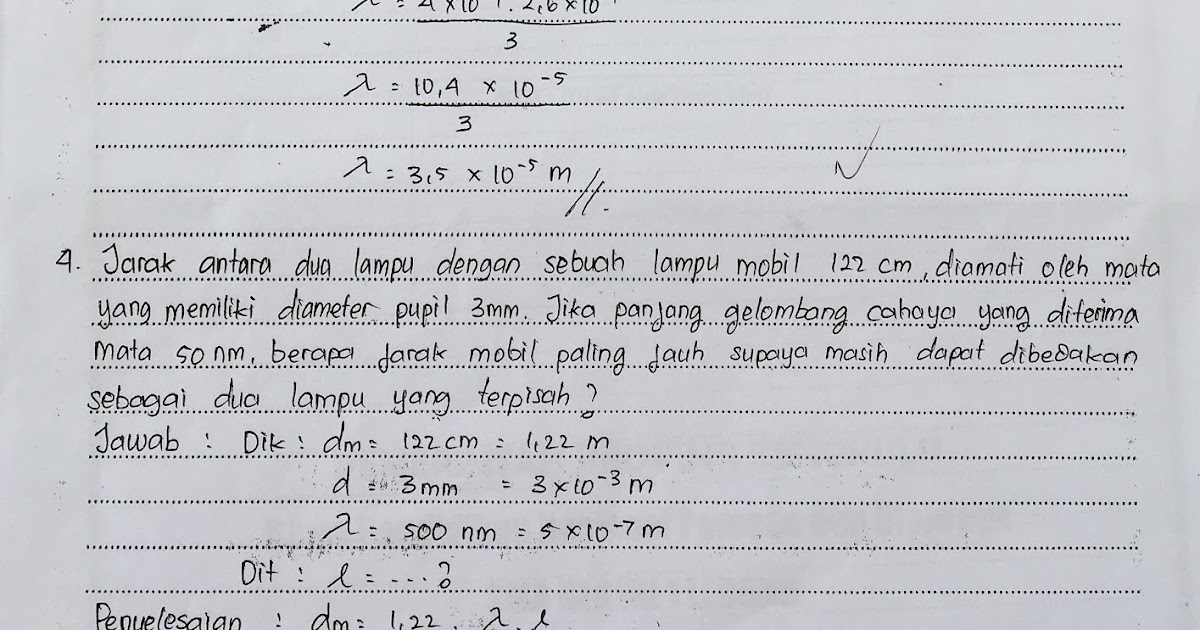 λ = 4 × 10 . 2,6 × 10
3
λ = 10,4 × 10⁻⁵
3
λ = 3,5 × 10⁻⁵ m //.
4. Jarak antara dua lampu dengan sebuah lampu mobil 122 cm, diamati oleh mata
yang memiliki diameter pupil 3mm. Jika panjang gelombang cahaya yang diterima
mata 50 nm, berapa jarak mobil paling jauh supaya masih dapat dibedakan
sebagai dua lampu yang terpisah?
Jawab : Dik : dm = 122 cm = 1,22 m
d = 3mm = 3×10⁻³ m
λ = 500 nm = 5×10⁻⁷ m
Dit : l = ....?
Penyelesaian : dm = 1,22 . λ . l